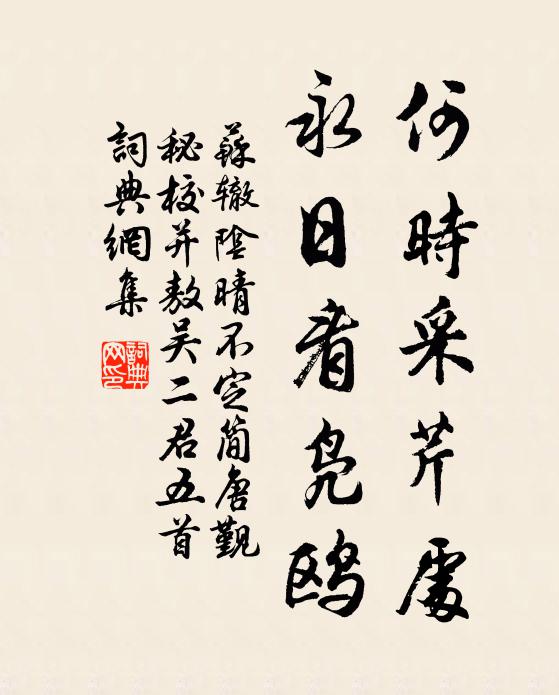 何時采芹處
永日看鳧鷗
蘇辙陰晴不定簡唐觀
秘校并敖吴二君五首
詞典網集
詞典网印